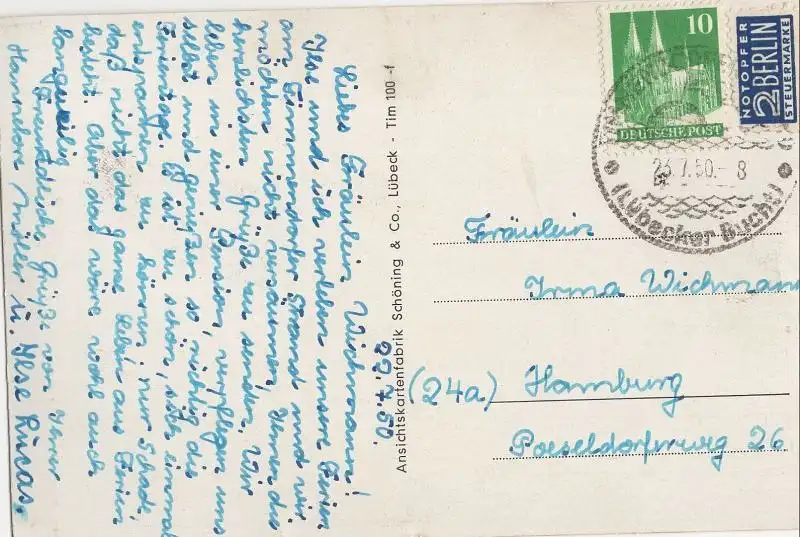 22.7.50.
Liebes Fräulein Wichmann!
Ilse und ich verleben unsere Ferien
am Timmendorfer Strand und wir
möchten nicht versäumen, Ihnen die
herzlichsten Grüße zu senden. Wir
leben in einer Pension, verpflegen uns
selbst und genießen so richtig die
Ferientage. Es ist zu schön, sich einmal
entspannen zu können, nur schade,
daß nicht das ganze Leben aus Ferien
besteht. Aber das wäre wohl auch
langweilig
Freundliche Grüße von Ihrer
Hannelore Müller u. Ilse Lucas.
Ansichtskartenfabrik Schöning & Co., Lübeck - Tim 100 -f
10
DEUTSCHE POST
NOTOPFER
2 BERLIN
STEUERMARKE
23.7.50.- 8
(Lübecker Bucht)
Fräulein
Irma Wichmann
(24a) Hamburg
Poeseldorferweg 26